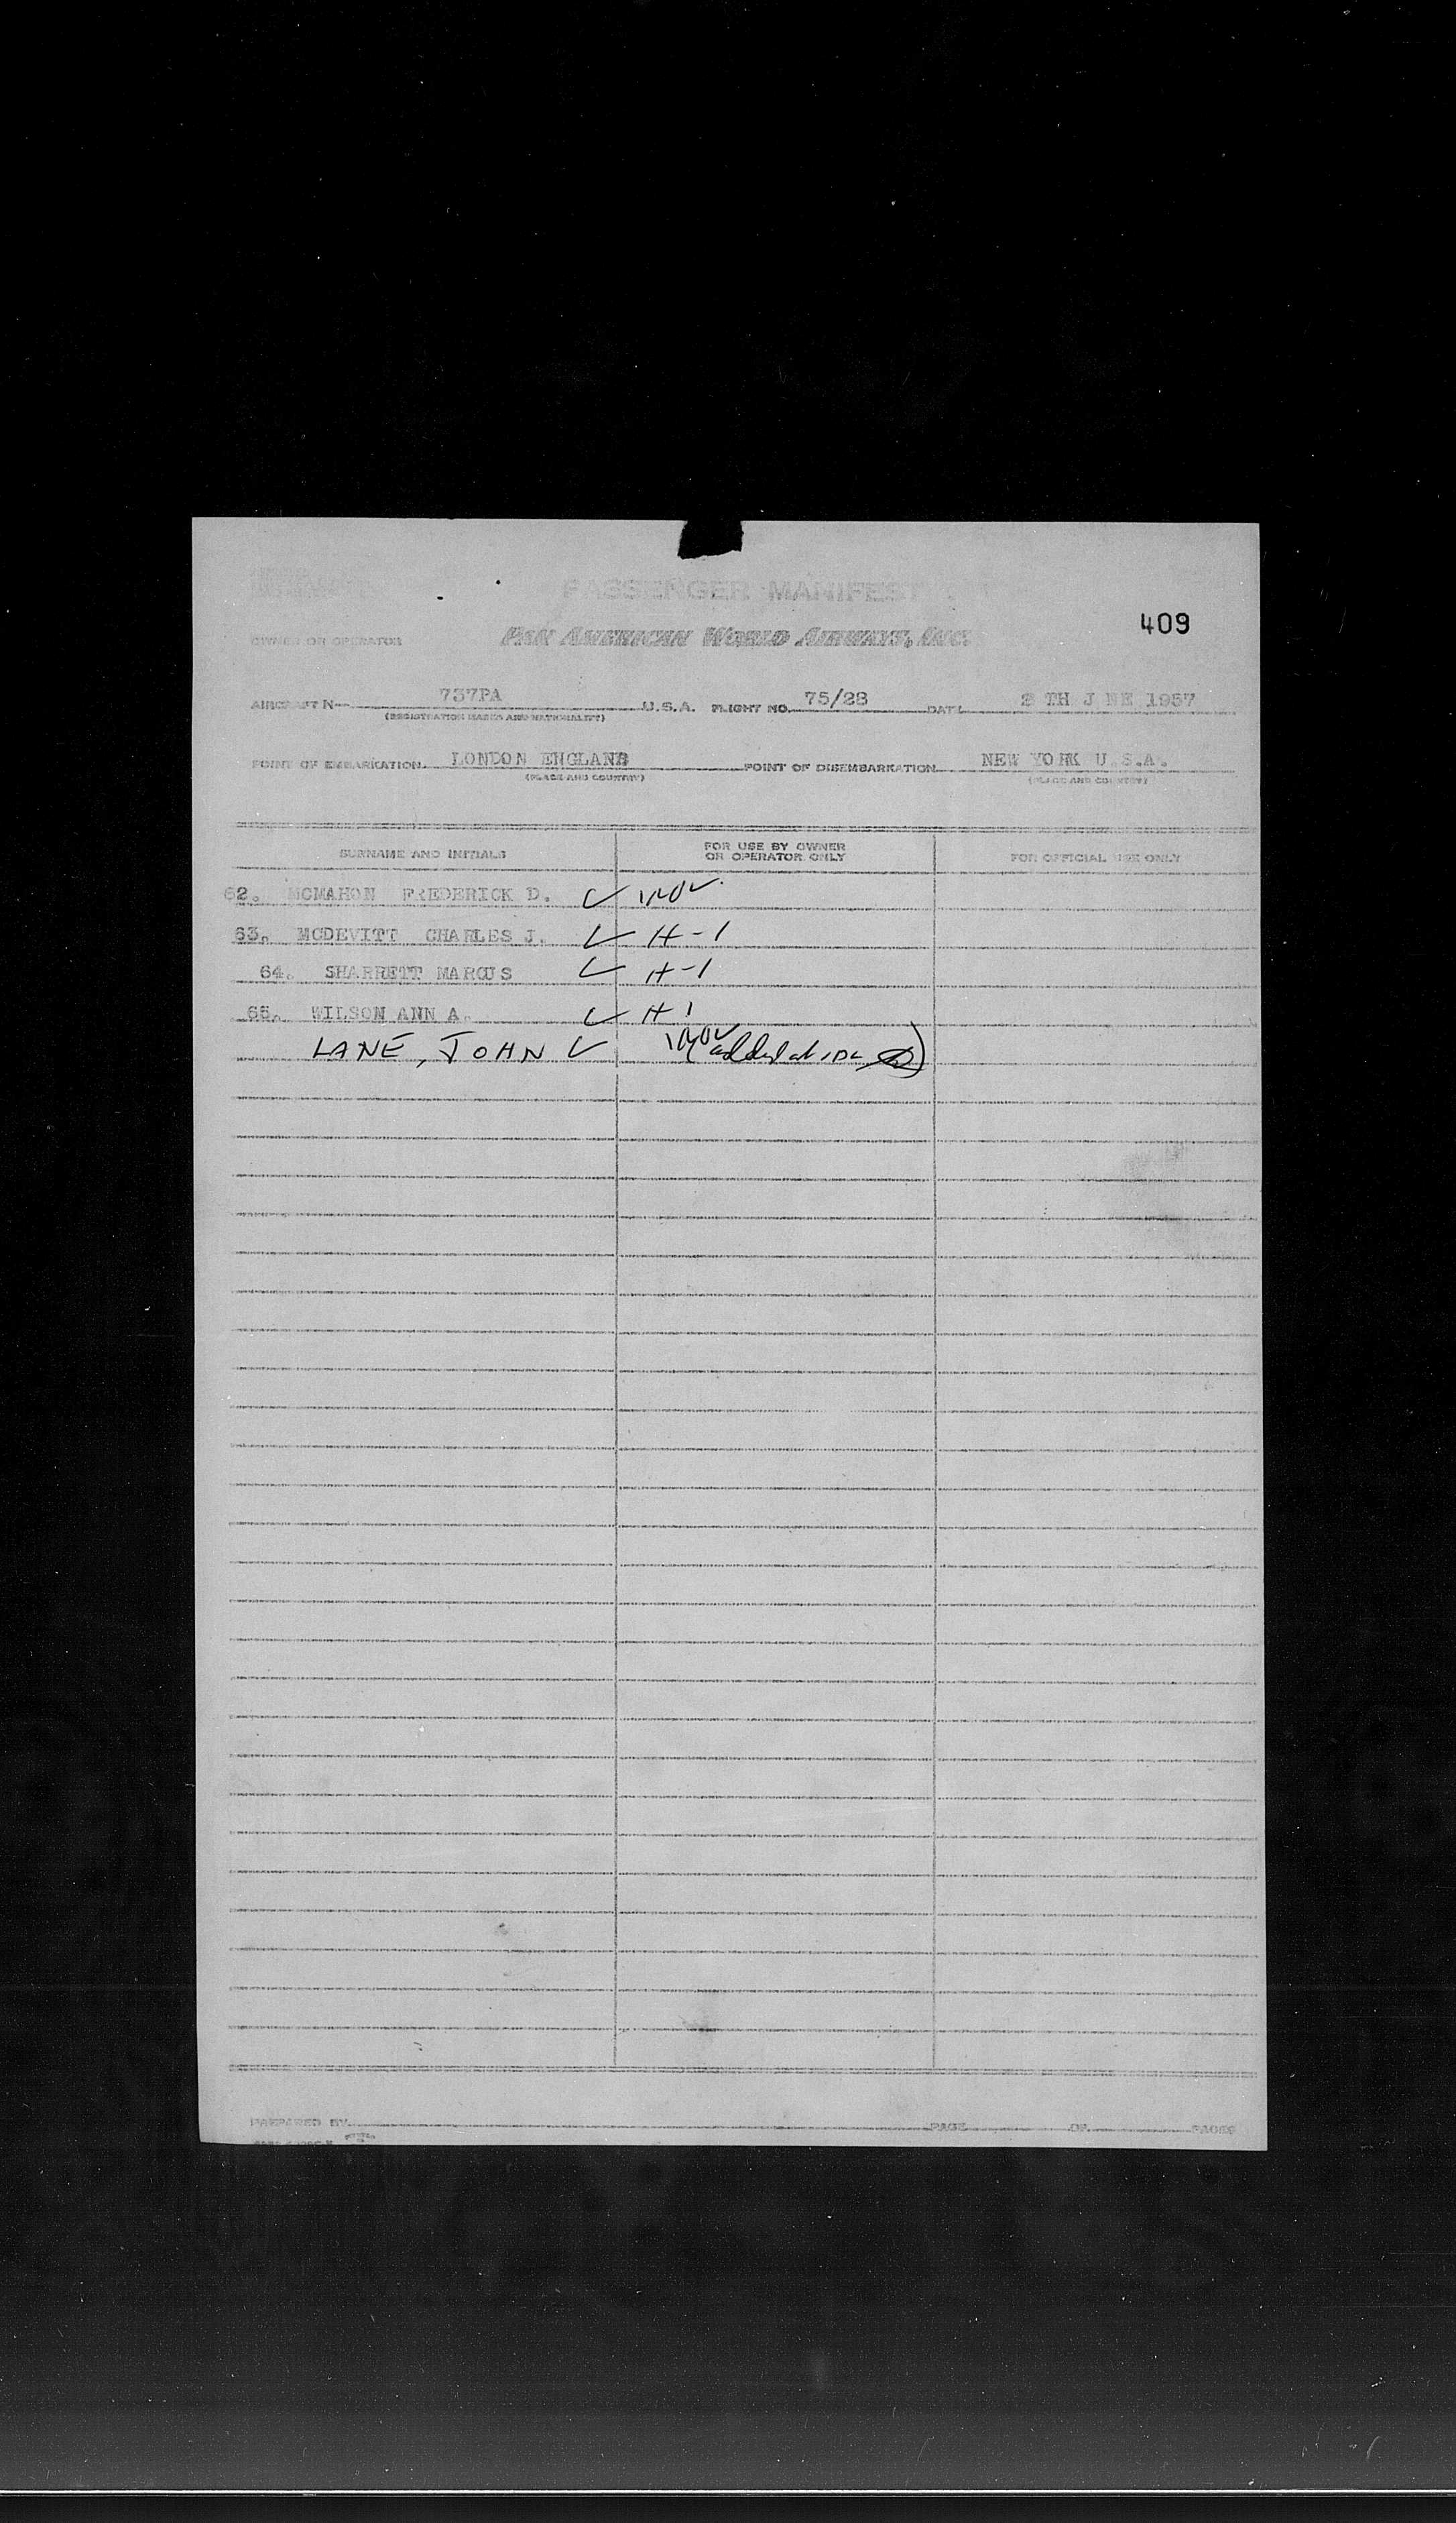 PASSENGER MANIFEST
409
OWNER OR OPERATOR PAN AMERICAN WORLD AIRWAYS, INC.
AIRCRAFT N 737PA U.S.A. FLIGHT NO. 75/28 DATE 2 TH J NE 1957
(REGISTRATION MARKS AND NATIONALITY)
POINT OF EMBARKATION LONDON ENGLAND POINT OF DISEMBARKATION NEW YORK U.S.A.
(PLACE AND COUNTRY) (PLACE AND COUNTRY)
SURNAME AND INITIALS FOR USE BY OWNER OR OPERATOR ONLY FOR OFFICIAL USE ONLY
62. MCMAHON FREDERICK D. ✓
63. MCDEVITT CHARLES J. ✓ H-1
64. SHARRETT MARCUS ✓ H-1
65. WILSON ANN A. ✓ H 1
LANE, JOHN ✓ (added at
PREPARED BY PAGE OF PAGES